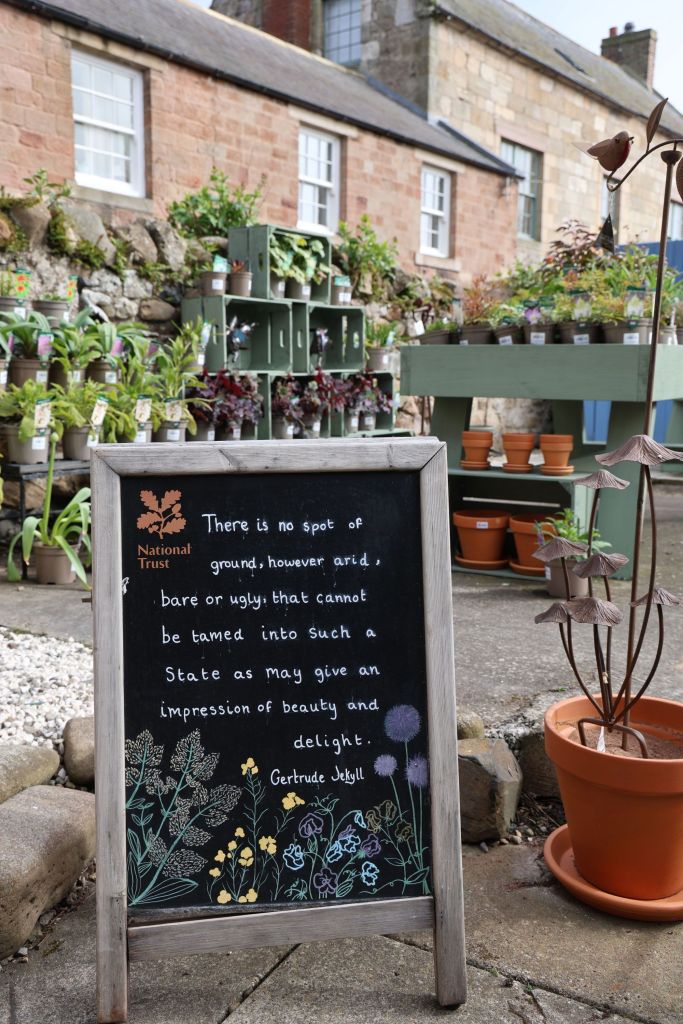 National
Trust
There is no spot of
ground, however arid,
bare or ugly, that cannot
be tamed into such a
State as may give an
impression of beauty and
delight.
Gertrude Jekyll